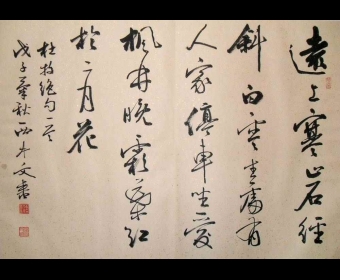 遠上寒山石徑
斜白雲生處有
人家停車坐愛
楓林晚霜葉紅
於二月花
杜牧絕句一首
戊子秋文書